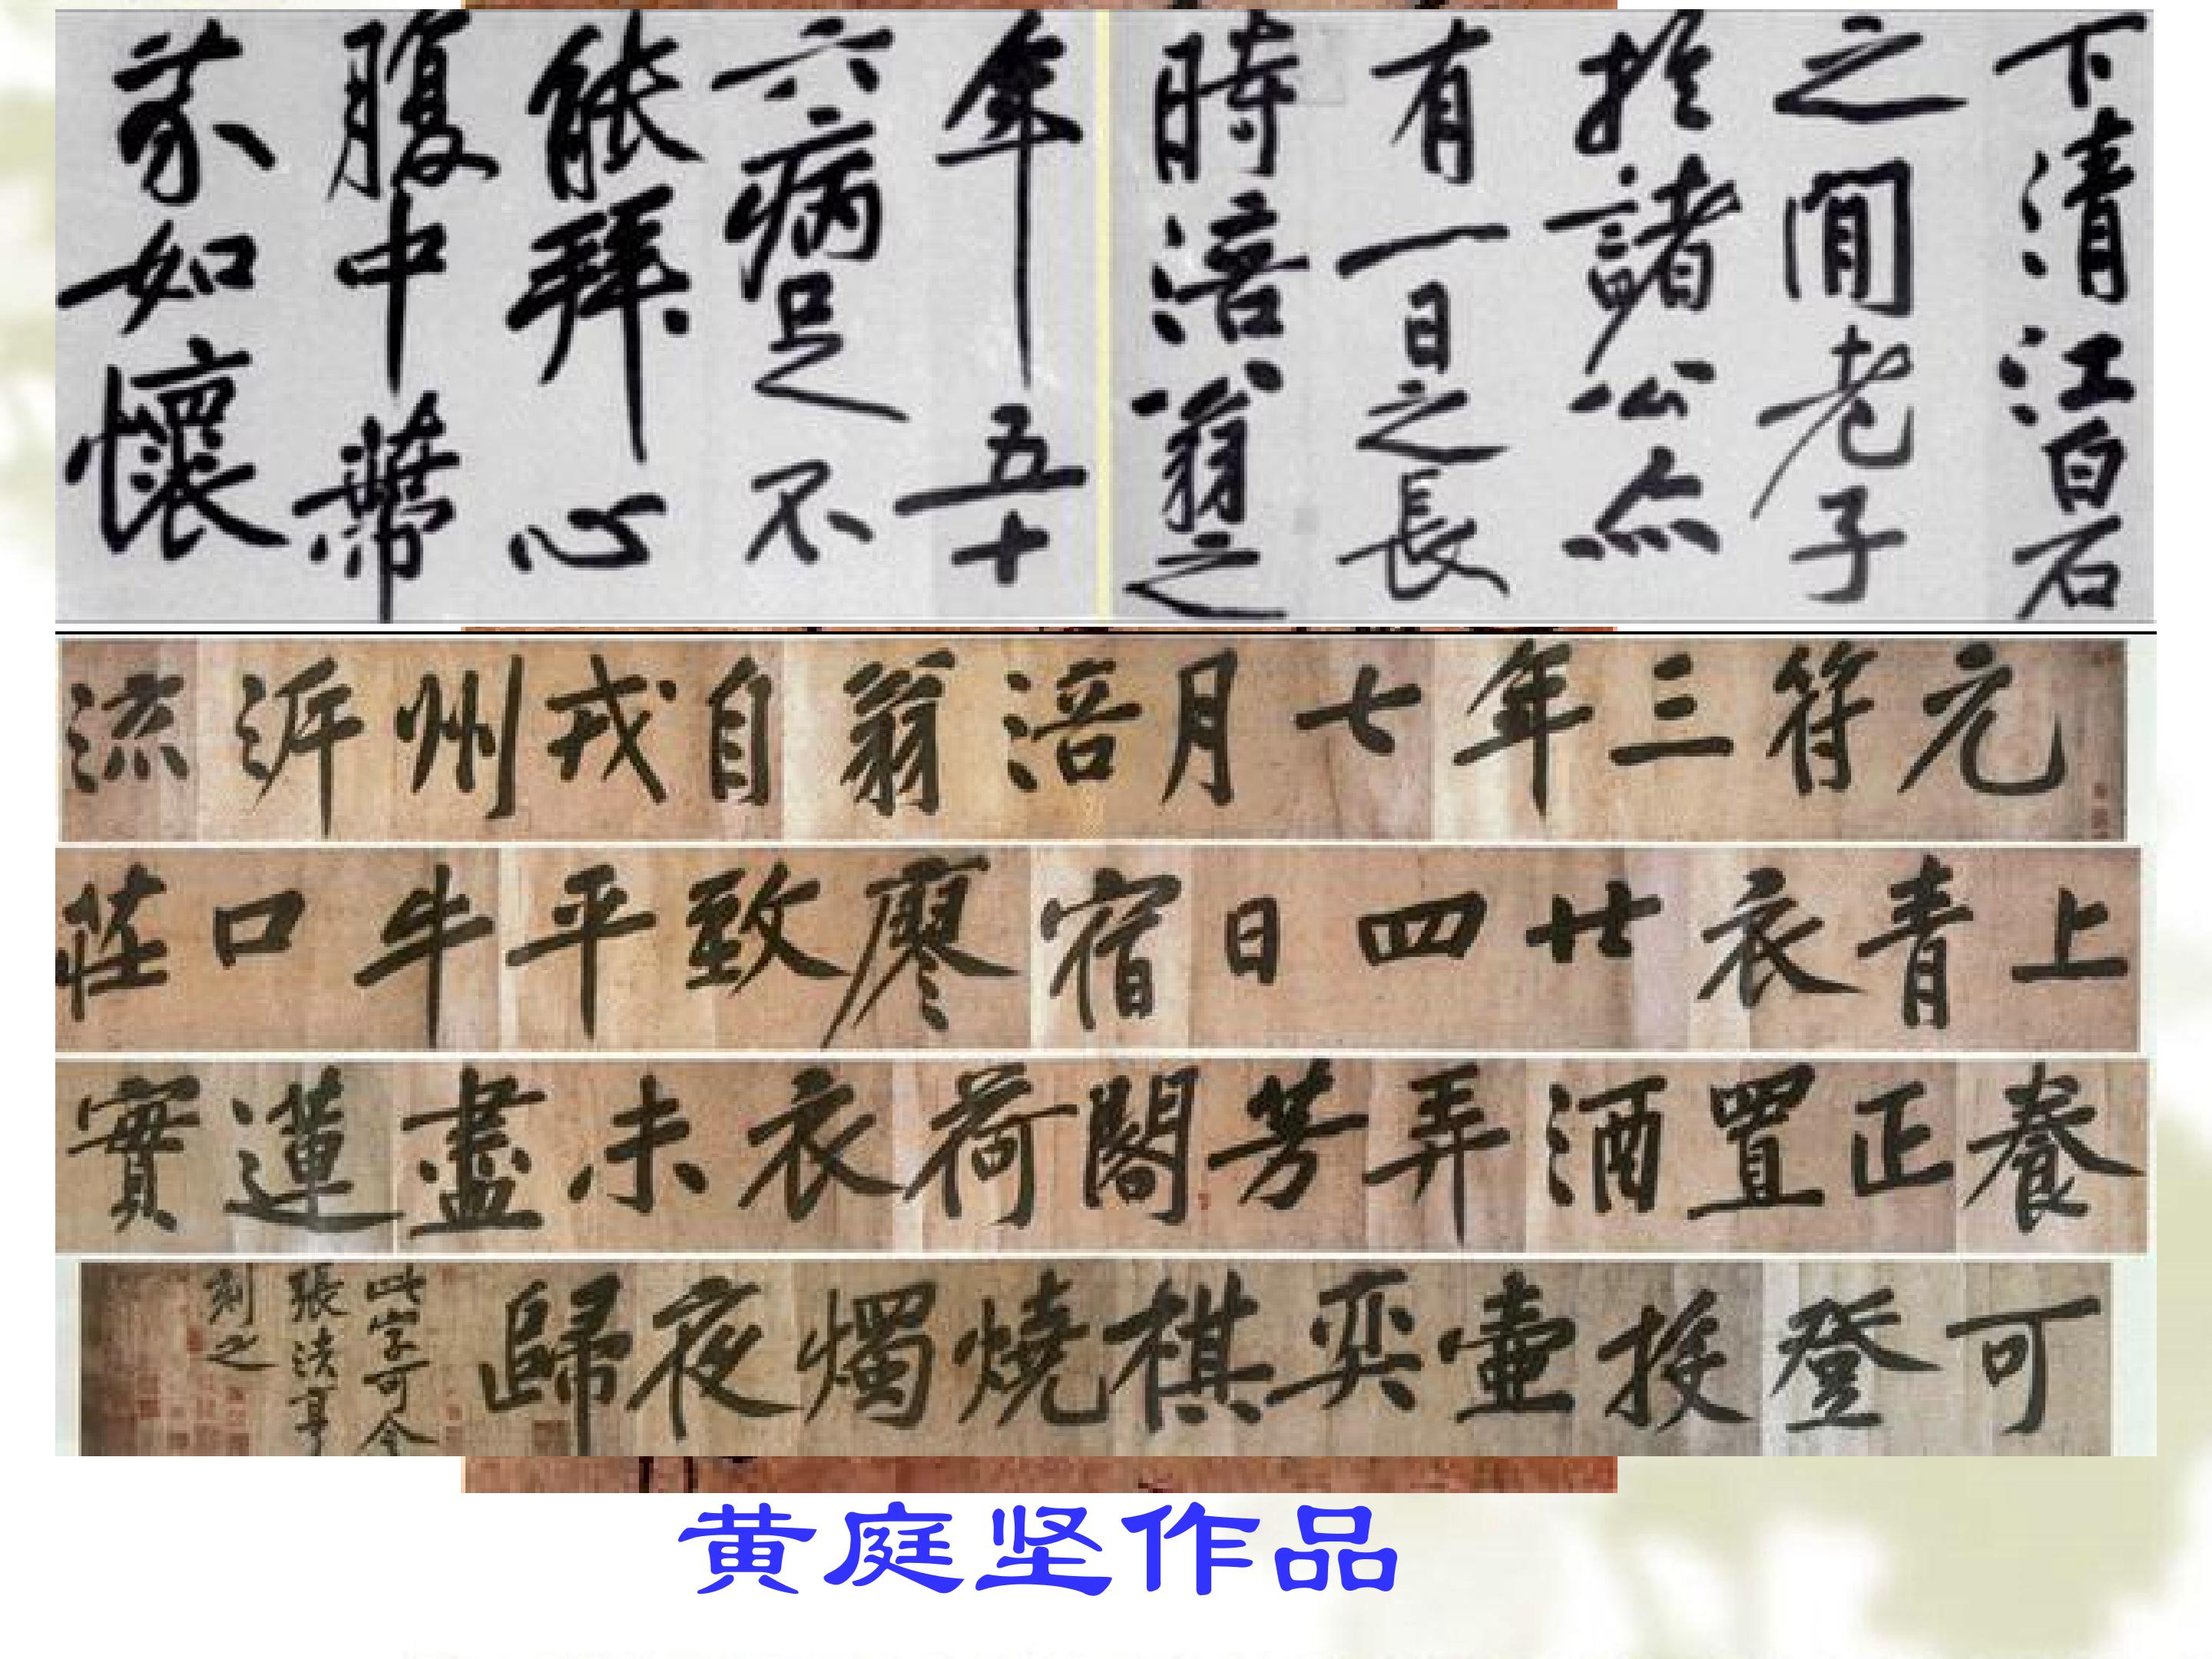 下清江白石
之間老子
於諸公亦
有一日之長
時涪翁之
年五十
六病足不
能拜心
腹中蔕
芥如懷
元符三年七月涪翁自戎州泝流
上青衣廿四日宿廖致平牛口莊
養正置酒弄芳閣荷衣未盡蓮實
可登投壺奕棋燒燭夜歸
此字可令
張法亨
刻之
黄庭坚作品